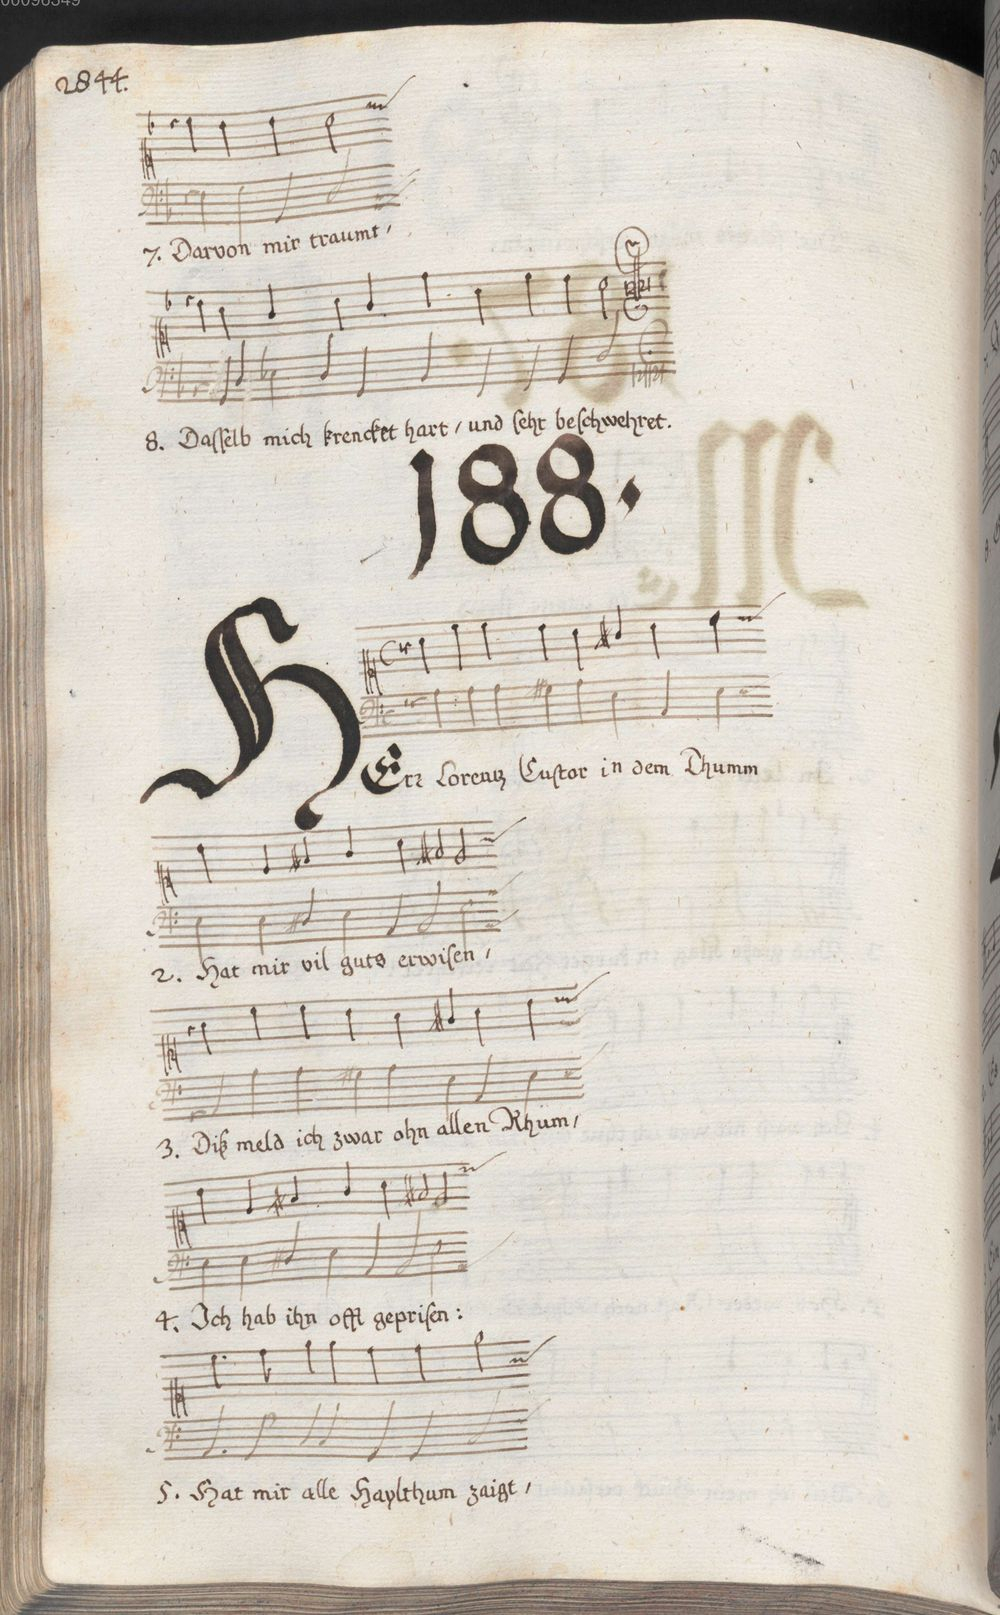 00098349
2844.
7. Darvon mir traumt,
8. Dasselb mich krencket hart, und sehr beschwehret.
188.
HErr Lorentz Custor in dem Thumm
2. Hat mir vil guts erwisen,
3. Diß meld ich zwar ohn allen Rhum,
4. Ich hab ihn offt geprisen:
5. Hat mir alle Haylthum zaigt,